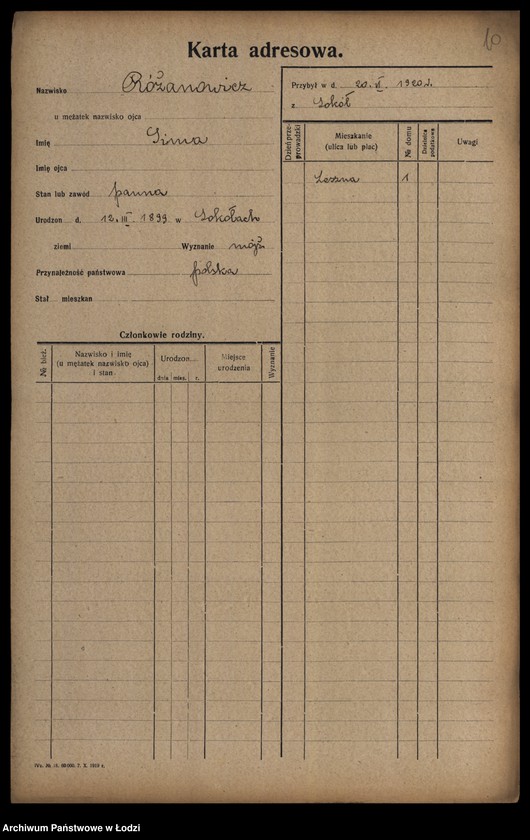 10
Karta adresowa.
Nazwisko Różanowicz
u mężatek nazwisko ojca
Imię Sima
Imię ojca
Stan lub zawód panna
Urodzon d. 12. III 1899 w Sokołach
ziemi Wyznanie mojż.
Przynależność państwowa polska
Stał mieszkan
Członkowie rodziny.
№ bież.
Nazwisko i imię
(u mężatek nazwisko ojca)
i stan
Urodzon...
dnia mies. r.
Miejsce
urodzenia
Wyznanie
Przybył w d. 20. VI 1920 r.
z Sokół
Dzień prze-
prowadzki
Mieszkanie
(ulica lub plac)
№ domu
Dzielnica
podatkowa
Uwagi
Leszna 1
7. X. 1919 r.
Archiwum Państwowe w Łodzi